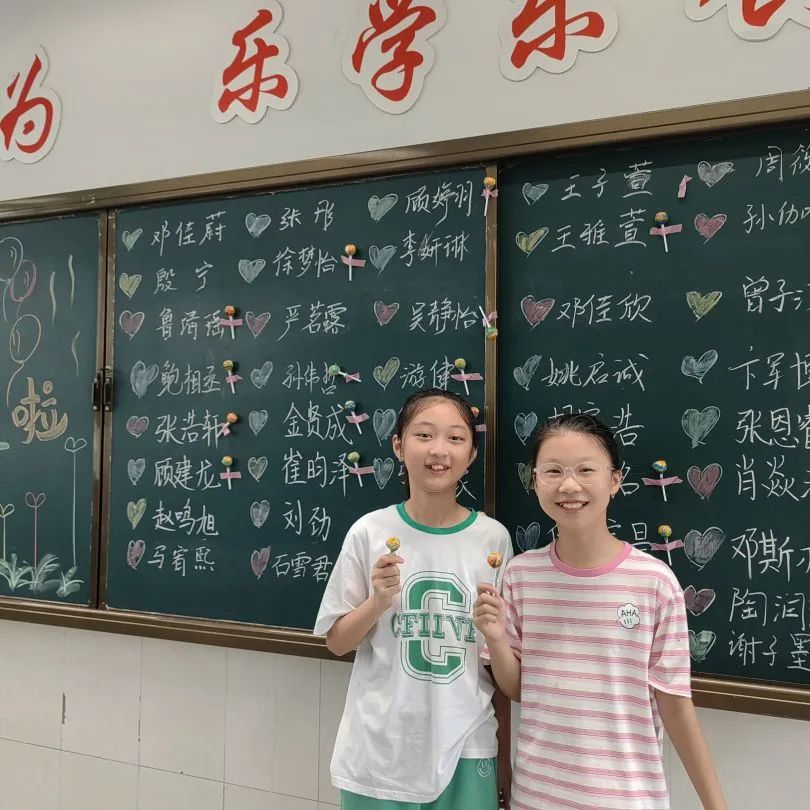 为 乐 学 乐
啦
邓佳蔚 张彤
殷宁 徐梦怡 李妍琳
鲁清瑶 严若霖 吴静怡
鲍相丞 孙伟哲 游健
张浩轩 金贤成
顾建龙 崔昀泽
赵鸣旭 刘劲
马宥熙 石雪君
王子萱 周
王雅萱 孙
邓佳欣 曾子
姚启诚 卞军
浩 张恩
肖焱
邓斯
陶润
谢子墨
C
AHA